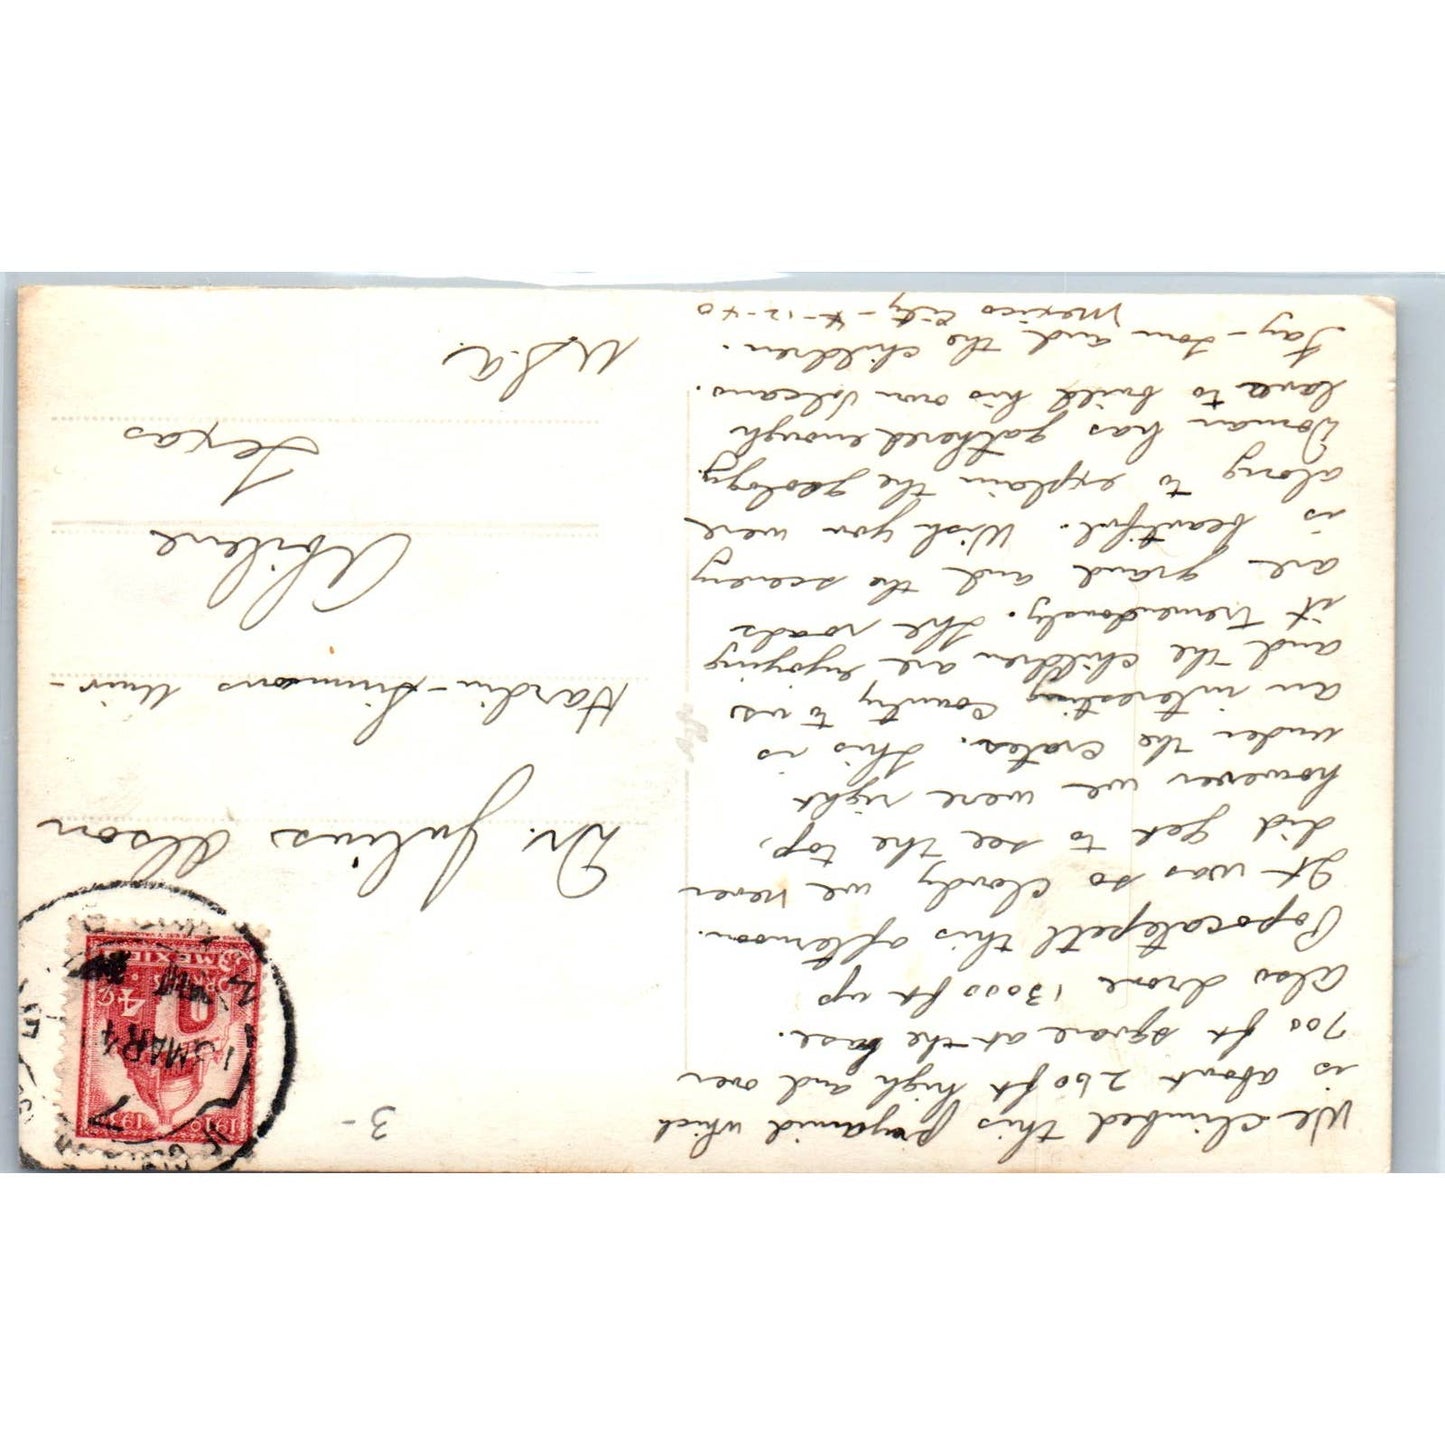 We climbed this pyramid which
is about 260 ft high and over
700 ft square at the base.
Also drove 13000 ft up
Popocatepetl this afternoon.
It was so cloudy we never
did get to see the top,
however we were right
under the crater. This is
an interesting country to us
and the children are enjoying
it tremendously. The roads
are grand and the scenery
is beautiful. Wish you were
along to explain the geology
Doman has gathered enough
lava to build his own volcano.
Fay - Tom and the children.
Mexico City - 4-12-40
3-
1910 1935
MAR 4
4¢
MEXICO
Dr. Julius Olson
Hardin-Simmons Univ-
Abilene
Texas
U.S.A.